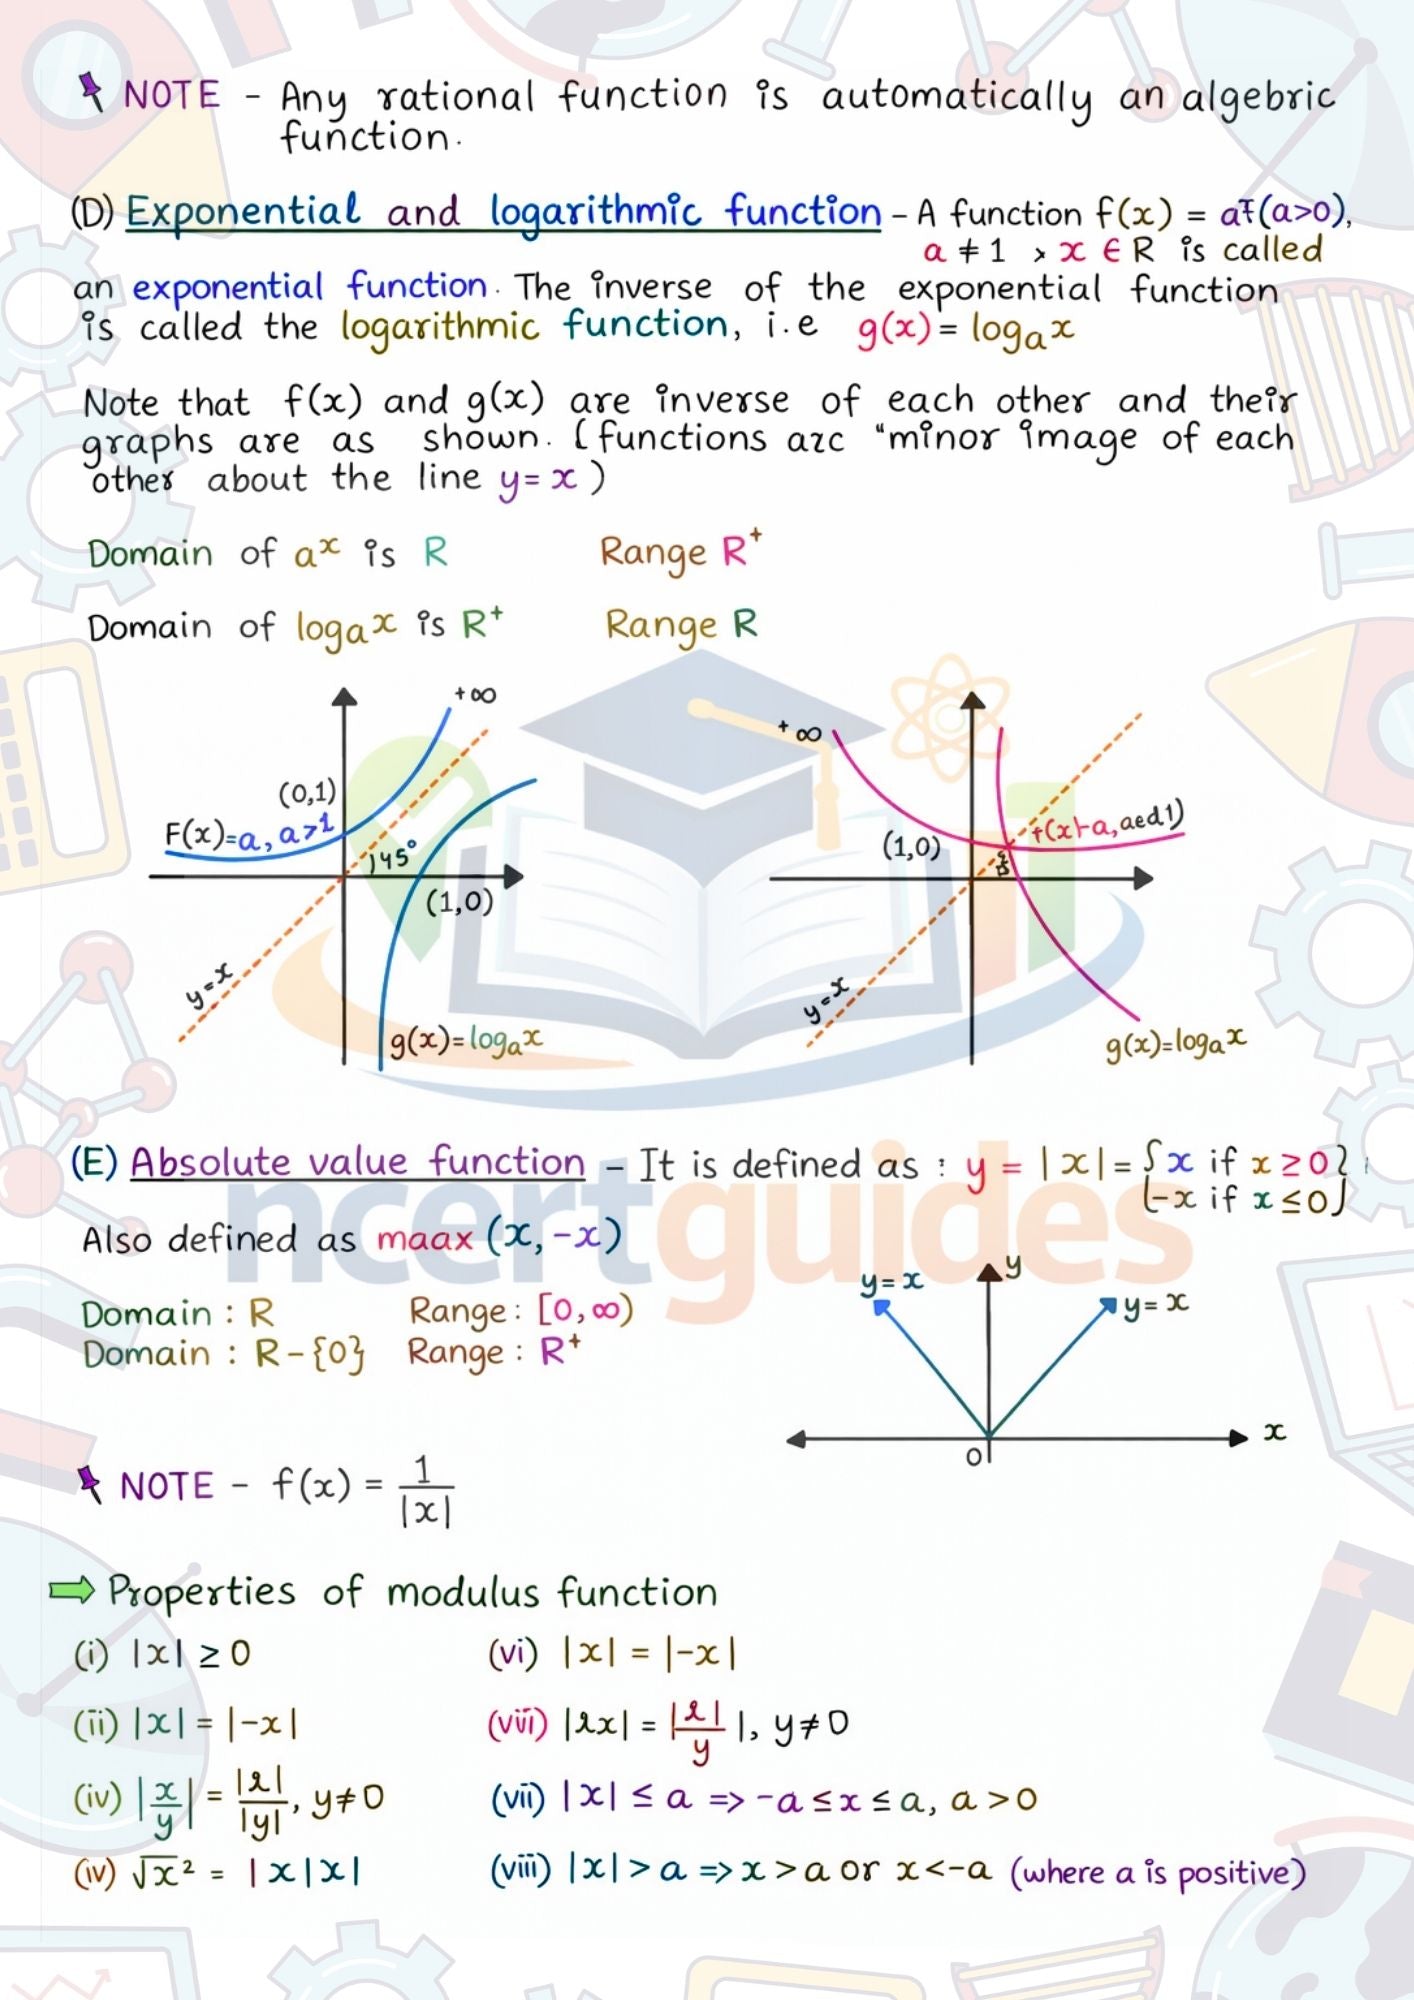 NOTE - Any rational function is automatically an algebric
function.
(D) Exponential and logarithmic function - A function f(x) = a^x (a>0),
a ≠ 1, x ∈ R is called
an exponential function. The inverse of the exponential function
is called the logarithmic function, i.e g(x) = logₐx
Note that f(x) and g(x) are inverse of each other and their
graphs are as shown. (functions azc "minor image of each
other about the line y = x)
Domain of aˣ is R Range R⁺
Domain of logₐx is R⁺ Range R
+∞
(0,1)
F(x)=a, a>1
)45°
(1,0)
y=x
g(x)=logₐx
+∞
(1,0)
+(x)-a, aed1)
y=x
g(x)=logₐx
(E) Absolute value function - It is defined as : y = |x| = {x if x ≥ 0}
{-x if x ≤ 0}
Also defined as maax (x, -x)
Domain : R Range : [0, ∞)
Domain : R - {0} Range : R⁺
y
y = x
y = x
x
0
NOTE - f(x) = 1/|x|
Properties of modulus function
(i) |x| ≥ 0 (vi) |x| = |-x|
(ii) |x| = |-x| (vii) |xx| = |x|/y |, y ≠ 0
(iv) |x/y| = |x|/|y|, y ≠ 0 (vii) |x| ≤ a => -a ≤ x ≤ a, a > 0
(iv) √x² = |x|x| (viii) |x| > a => x > a or x < -a (where a is positive)
ncertguides